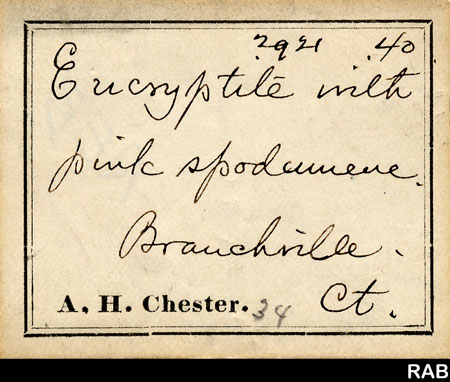 2921 .40
Eucryptite with
pink spodumene.
Branchville.
A. H. Chester. 34 Ct.
RAB